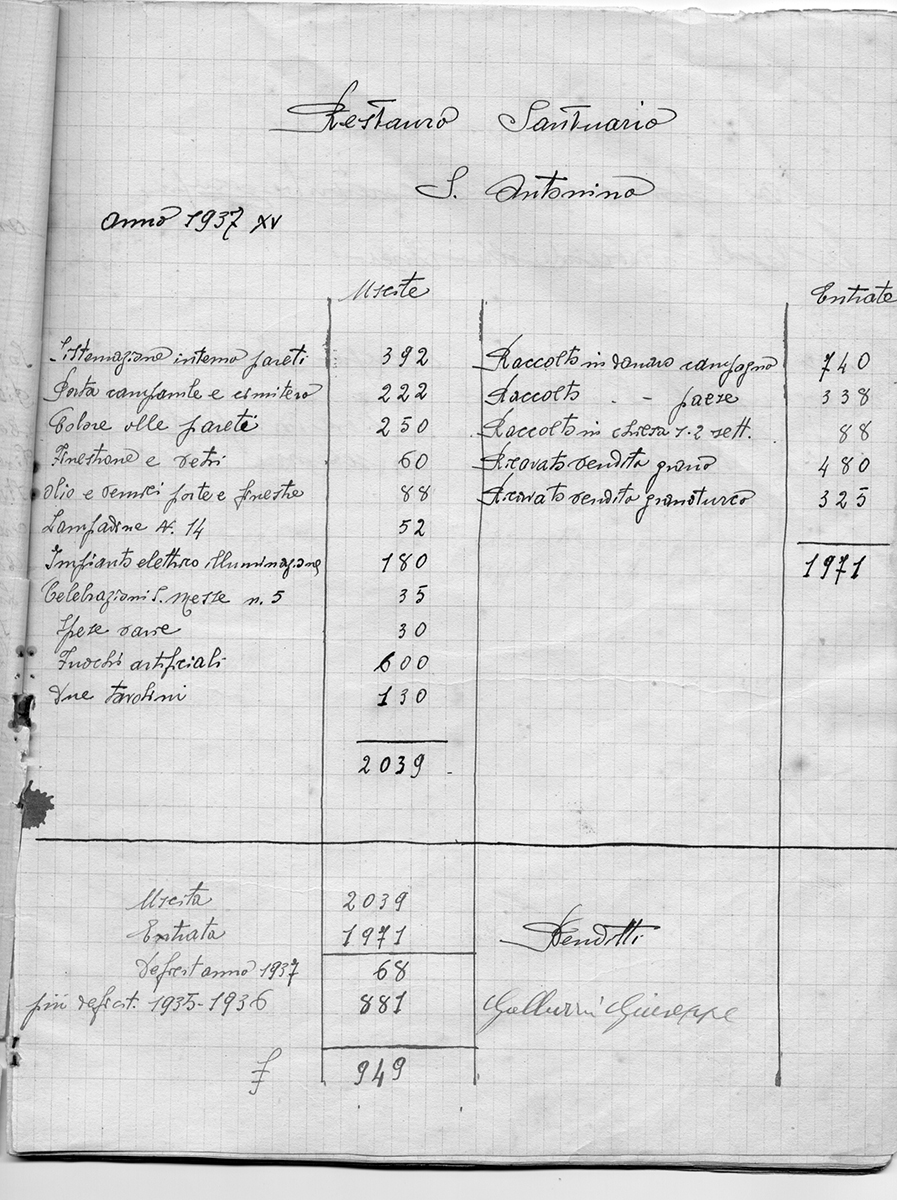 Restauro Santuario
S. Antonino
Anno 1937 XV
Uscite
Entrate
Sistemazione interno pareti 392
Porta campanile e cimitero 222
Colore alle pareti 250
Finestrone e vetri 60
Olio e vernici porte e finestre 88
Lampadine N. 14 52
Impianto elettrico illuminazione 180
Celebrazioni S. Messe n. 5 35
Spese varie 30
Fuochi artificiali 600
Due tavolini 130
2039
Raccolto in danaro campagna 740
Raccolto - - paese 338
Raccolto in chiesa 1-2 sett. 88
Ricavato vendita grano 480
Ricavato vendita granoturco 325
1971
Uscita 2039
Entrata 1971
Deficit anno 1937 68
più deficit. 1935-1936 881
£ 949
Venditti
Giuseppe